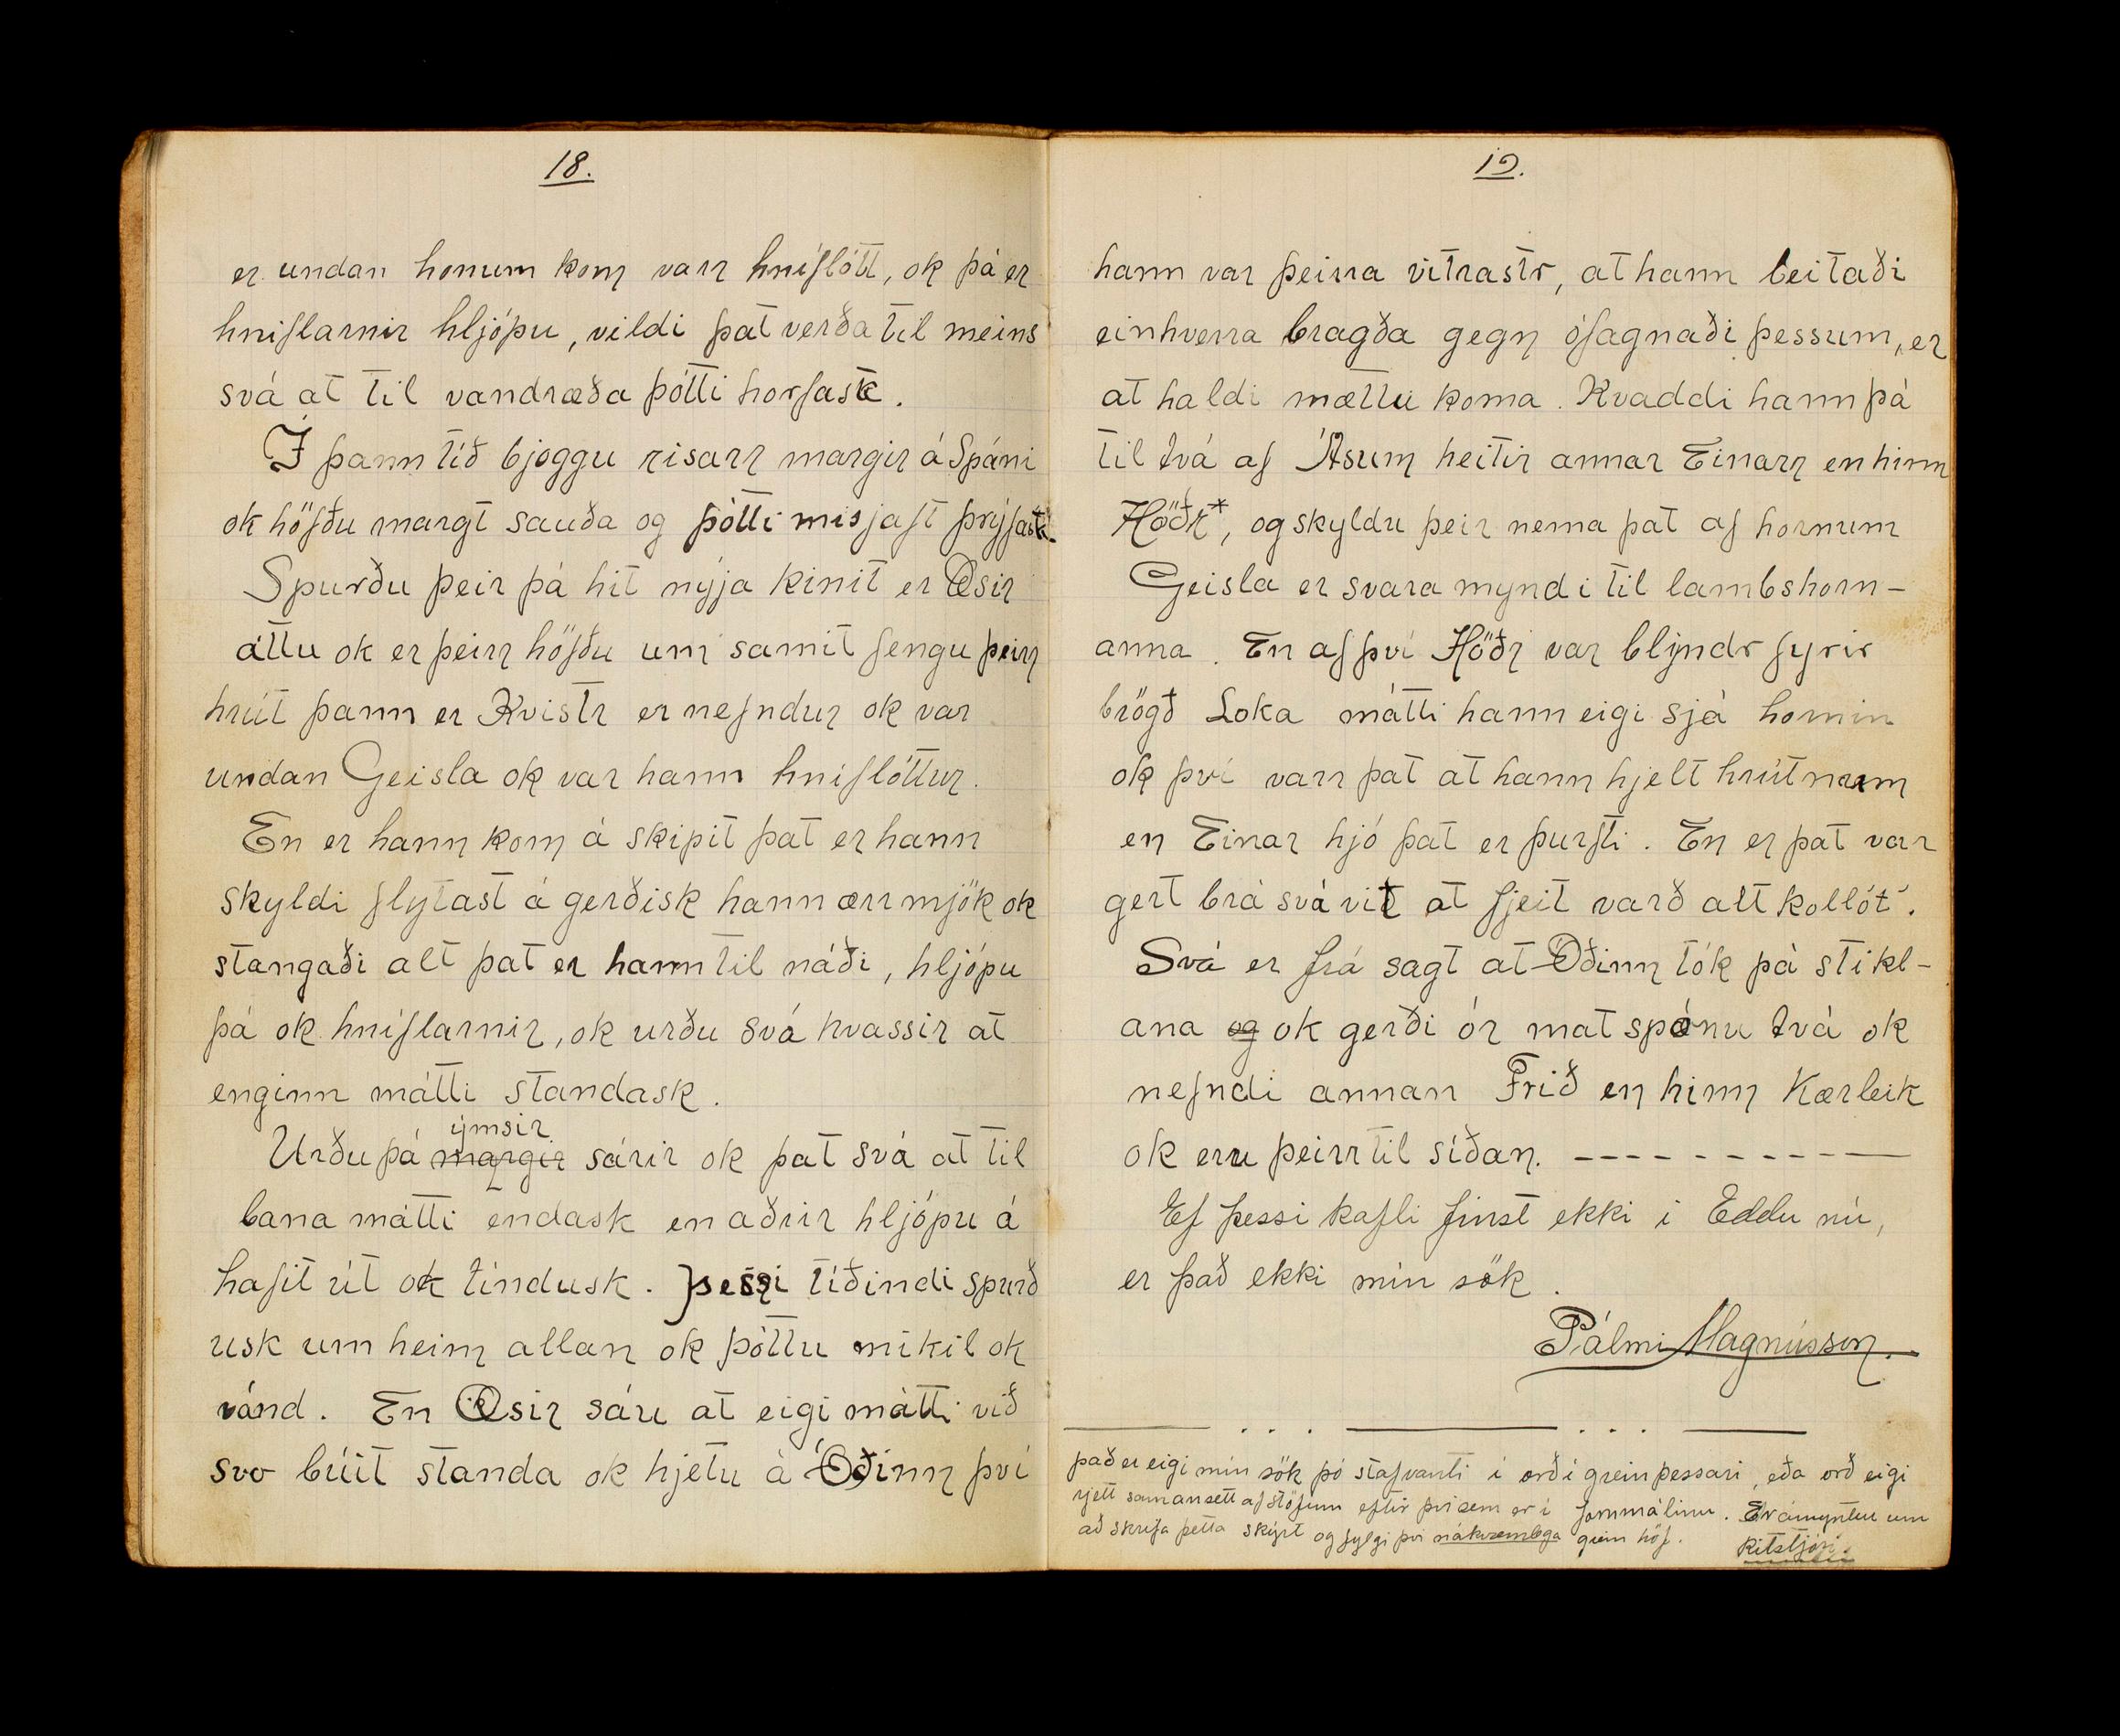 18.
er undan honum kom varr hníflótt, ok þá er
hniflarnir hljópu, vildi þat verða til meins
svá at til vandræða þótti horfask.
Í þann tíð bjoggu risarr margir á Spáni
ok höfðu margt sauða og þótti misjaft þrýfask.
Spurðu þeir þá hit nýja kinit er Æsir
áttu ok er þeirr höfðu um samit fengu þeirr
hrút þann er Kvistr er nefndur ok var
undan Geisla ok var hann hníflóttur.
En er hann kom á skipit þat er hann
skyldi flytast á gerðisk hann ærr mjök ok
stangaði alt þat er hann til náði, hljópu
þá ok hníflarnir, ok urðu svá kvassir at
enginn mátti standask.
Urðu þá margir ýmsir sárir ok þat svá at til
bana mátti endask en aðrir hljópu á
hafit út ok tíndusk. Þessi tíðindi spurð
usk um heim allan ok þóttu mikil ok
vánd. En Æsir sáu at eigi mátti við
svo búit standa ok hjetu á Óðinn því
19.
hann var þeirra vitrastr, at hann beitaði
einhverra bragða gegn ófagnaði þessum, er
at haldi mættu koma. Kvaddi hann þá
til tvá af Ásum heitir annar Einarr en hinn
Höðr*, og skyldu þeir nema þat af hornum
Geisla er svara myndi til lambshorn-
anna. En af því Höðr var blyndr fyrir
brögð Loka mátti hann eigi sjá hornin
ok því varr þat at hann hjelt hrútnum
en Einar hjó þat er þurfti. En er þat var
gert brá svá vit at fjeit varð alt kollót.
Svá er frá sagt at Óðinn tók þá stikl-
ana og ok gerði ór mat spónu tvá ok
nefndi annan Frið en hinn Kærleik
ok eru þeirr til síðan. -----------
Ef þessi kafli finst ekki i Eddu nú,
er það ekki mín sök.
Pálmi Magnússon.
það er eigi mín sök þó staf vanti í orð í grein þessari, eða orð eigi
rjett samansett af stöfum eftir því sem er í fornmálinu. Er ámyntur um
að skrifa þetta skýrt og fylgi því nákvæmlega grein höf.
Ritstjóri.